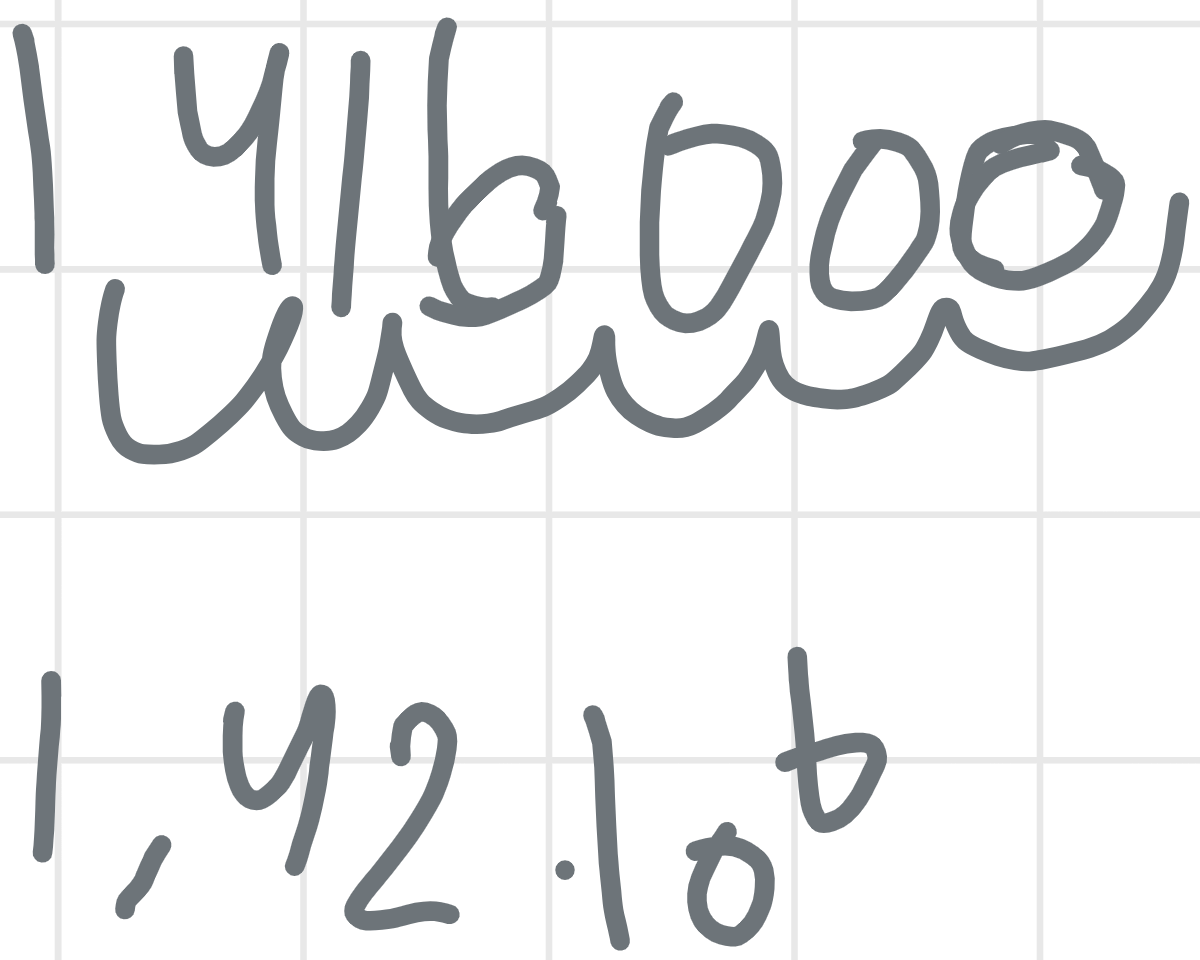 1 416 000
1,42 · 10⁶